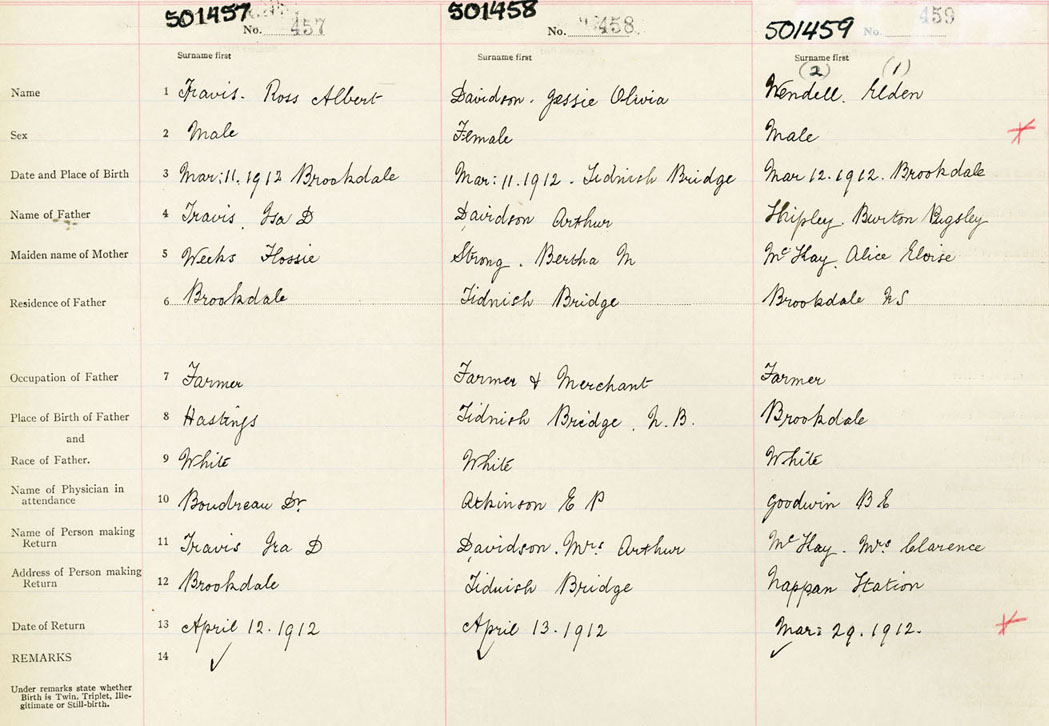 501457 501458 501459
No. 457 No. 458 No. 459
Surname first Surname first Surname first
(2) (1)
Name 1 Travis. Ross Albert Davidson. Jessie Olivia Wendell. Elden
Sex 2 Male Female Male
Date and Place of Birth 3 Mar: 11. 1912 Brookdale Mar: 11. 1912. Tidnish Bridge Mar 12. 1912. Brookdale
Name of Father 4 Travis, Ira D Davidson Arthur Shipley. Burton Pugsley
Maiden name of Mother 5 Weeks Flossie Strong. Bertha M McKay. Alice Eloise
Residence of Father 6 Brookdale Tidnish Bridge Brookdale NS
Occupation of Father 7 Farmer Farmer & Merchant Farmer
Place of Birth of Father 8 Hastings Tidnish Bridge, N.B. Brookdale
and
Race of Father. 9 White White White
Name of Physician in
attendance 10 Boudreau Dr. Atkinson E P Goodwin B E
Name of Person making
Return 11 Travis Ira D Davidson. Mrs Arthur McKay. Mrs Clarence
Address of Person making
Return 12 Brookdale Tidnish Bridge Nappan Station
Date of Return 13 April 12. 1912 April 13. 1912 Mar: 29. 1912.
REMARKS 14
Under remarks state whether
Birth is Twin, Triplet, Ille-
gitimate or Still-birth.